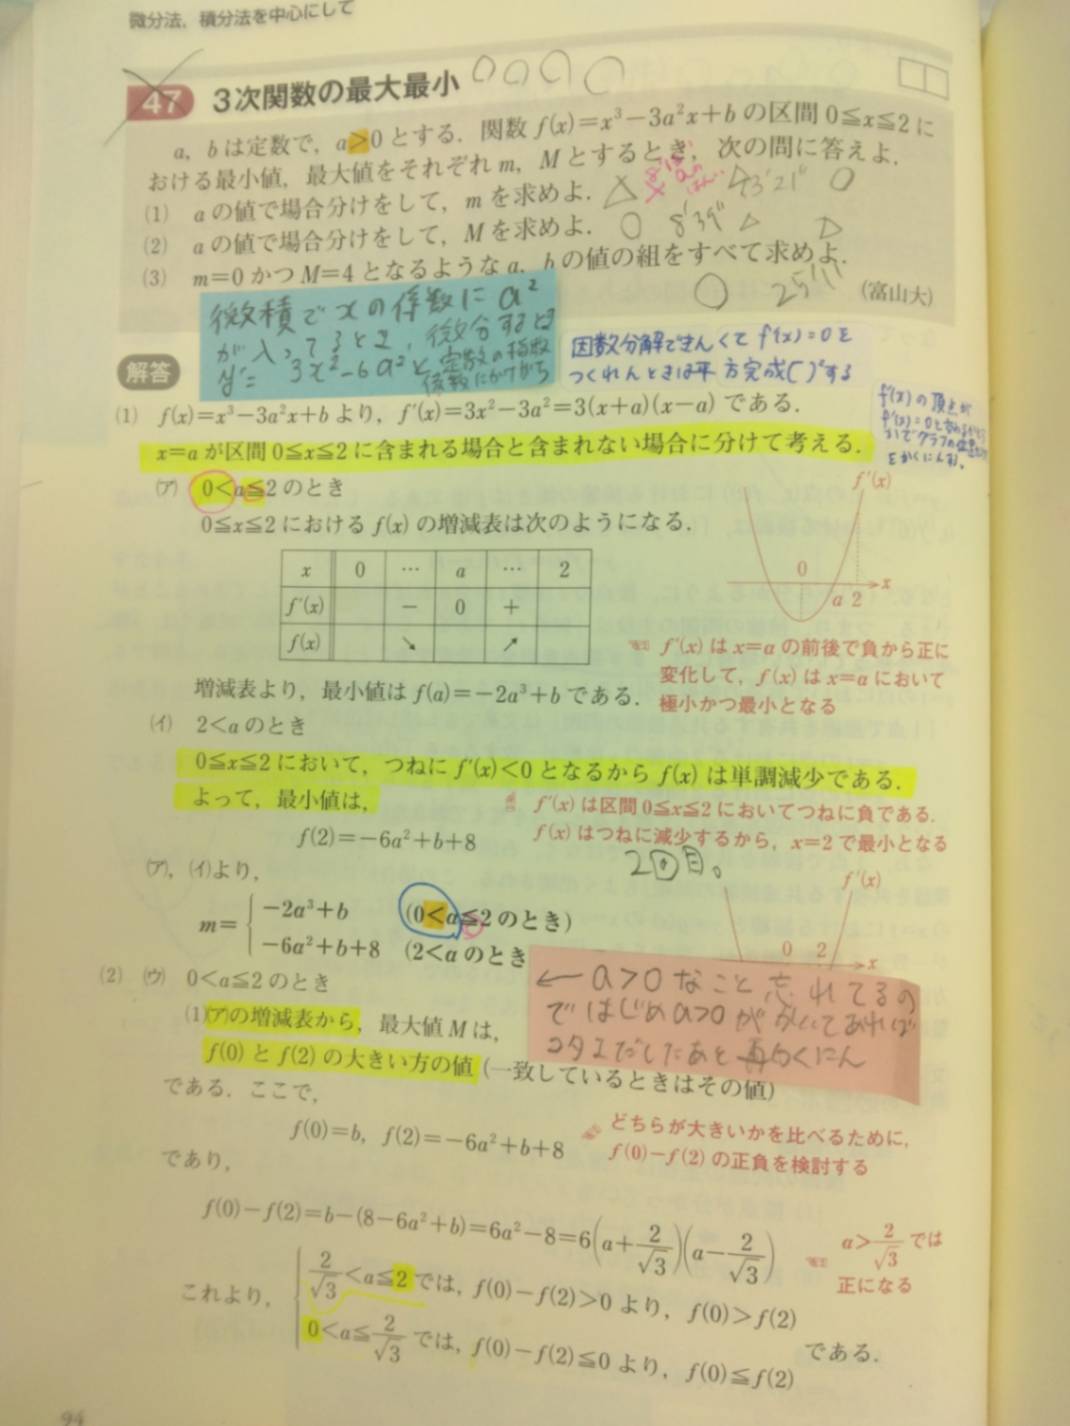 微分法，積分法を中心にして
47 3次関数の最大最小
a，bは定数で，a>0とする．関数 f(x)=x³−3a²x+b の区間 0≦x≦2 に
おける最小値，最大値をそれぞれ m，M とするとき，次の問に答えよ．
(1) aの値で場合分けをして，mを求めよ．
(2) aの値で場合分けをして，Mを求めよ．
8'39"
(3) m=0 かつ M=4 となるような a，bの値の組をすべて求めよ．
(富山大)
微積でxの係数にa²
が入ってるとき，微分するとき
y'= 3x²−6a²と定数の指数
係数にかけがち
因数分解できんくて f'(x)=0を
つくれんときは平方完成( )²する
解答
f'(x)の頂点が
(1) f(x)=x³−3a²x+b より，f'(x)=3x²−3a²=3(x+a)(x−a) である．
x=a が区間 0≦x≦2 に含まれる場合と含まれない場合に分けて考える．
(ア) 0<a≦2 のとき
f'(x)
0≦x≦2 における f(x) の増減表は次のようになる．
x 0 … a … 2
f'(x) − 0 +
f(x) ↘ ↗
0 a 2 x
f'(x) は x=a の前後で負から正に
変化して，f(x) は x=a において
極小かつ最小となる
増減表より，最小値は f(a)=−2a³+b である．
(イ) 2<a のとき
0≦x≦2 において，つねに f'(x)<0 となるから f(x) は単調減少である．
よって，最小値は，
f'(x) は区間 0≦x≦2 においてつねに負である．
f(x) はつねに減少するから，x=2 で最小となる
f(2)=−6a²+b+8
2回目。
(ア)，(イ)より，
f'(x)
m= { −2a³+b (0<a≦2 のとき)
−6a²+b+8 (2<a のとき
0 2 x
←a>0なこと忘れてるの
ではじめa>0がかいてあれば
コタエだしたあと再かくにん
(2) (ウ) 0<a≦2 のとき
(1)(ア)の増減表から，最大値 M は，
f(0) と f(2) の大きい方の値 (一致しているときはその値)
である．ここで，
f(0)=b, f(2)=−6a²+b+8
どちらが大きいかを比べるために，
f(0)−f(2) の正負を検討する
であり，
f(0)−f(2)=b−(8−6a²+b)=6a²−8=6(a+2/√3)(a−2/√3)
a>2/√3 では
正になる
これより， { 2/√3<a≦2 では，f(0)−f(2)>0 より，f(0)>f(2)
0<a≦2/√3 では，f(0)−f(2)≦0 より，f(0)≦f(2)
である．
94